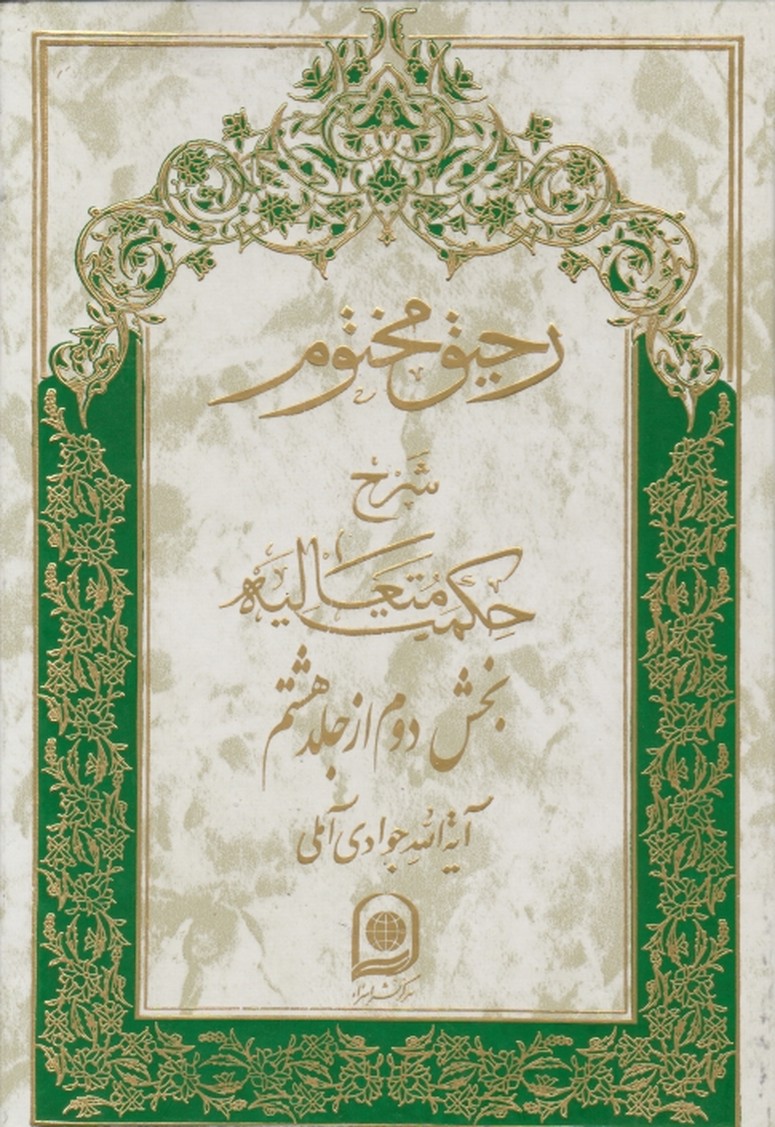 رحیق مختوم
شرح
حکمت متعالیه
بخش دوم از جلد هشتم
آیة الله جوادی آملی
مرکز نشر اسراء